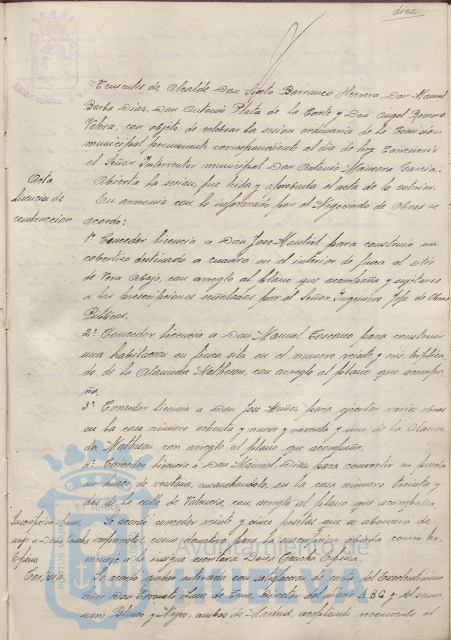 diez
Tenientes de Alcalde Don Sixto Barranco Herrera, Don Manuel
Barba Diaz, Don Antonio Plata de la Corte y Don Angel Romero
Valera, con objeto de celebrar la sesion ordinaria de la Comision
municipal permanente correspondiente al dia de hoy. Concurrio
el Señor Interventor municipal Don Antonio Manceras Garcia.
Acta
Abierta la sesion, fue leida y aprobada el acta de la anterior.
licencias de
construccion
En armonia con lo informado por el Negociado de Obras se
acordo:
1º Conceder licencia a Don Jose Montiel para construir un
cobertizo destinado a cuadra en el interior de finca al sitio
de Vera Abajo, con arreglo al plano que acompaña y sujetarse
a las prescripciones señaladas por el Señor Ingeniero Jefe de Obras
Publicas.
2º Conceder licencia a Don Manuel Toscano para construir
una habitacion en finca sita en el numero veinte y seis triplica-
do de la Alameda Matheson, con arreglo al plano que acompa-
ña.
3º Conceder licencia a Don Jose Nuñez para ejecutar varias obras
en la casa numero ochenta y nueve y noventa y uno de la Alame-
da Matheson, con arreglo al plano que acompaña.
4º Conceder licencia a Don Manuel Diaz para convertir en puerta
un hueco de ventana, ensanchandolo, en la casa numero treinta y
dos de la calle de Valencia, con arreglo al plano que acompaña.
Se acordo conceder veinte y cinco pesetas que se abonaran de
imprevistos, como donativo para la suscripcion abierta como ho-
menaje a la insigne escritora Doña Concha Espina.
Espina
Se acordo quedar enterado con satisfaccion de carta del Excelentisimo
Señor Don Torcuato Luca de Tena, Director del diario ABC y del sema-
nario Blanco y Negro, ambos de Madrid, aceptando reconocido el
Ayuntamiento de
HUELVA